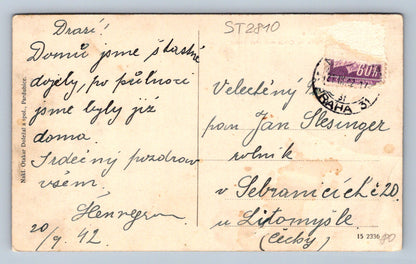 ST2810
Drazí!
Domů jsme šťastně
dojely, po půlnoci
jsme byly již
doma
Srdečný pozdrav
všem.
20/9. 42
Nakl. Otakar Doležal a spol., Pardubice.
60h
PRAHA 31
Velectěný
pan Jan Slesinger
rolník
v Sebranicích č 20.
u Litomyšle
(Čechy)
15 2336
80